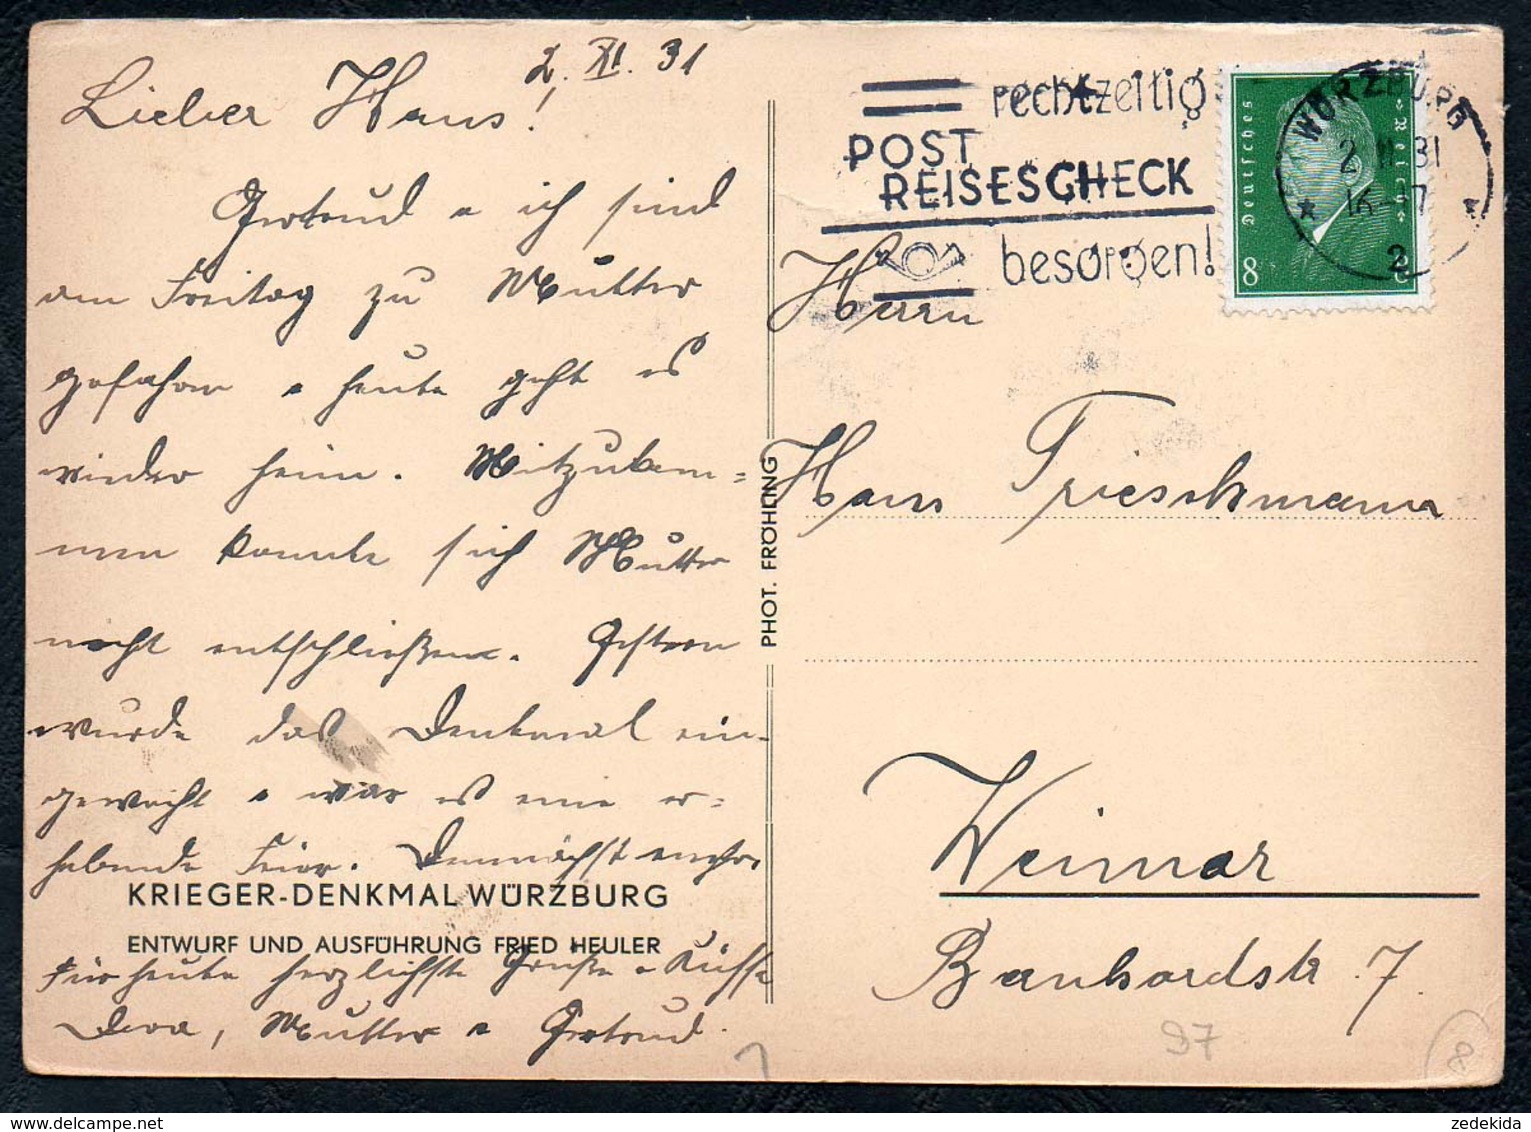 2. XI. 31
Lieber Hans!
Gertrud u ich sind
am Freitag zu Mutter
gefahren u heute geht es
wieder heim. Mitzukom=
men konnte sich Mutter
nicht entschließen. Gestern
wurde das Denkmal ein-
geweiht u war es eine er-
hebende Feier. Demnächst mehr.
KRIEGER-DENKMAL WÜRZBURG
ENTWURF UND AUSFÜHRUNG FRIED HEULER
Für heute herzlichste Grüße u Küsse
Mutter u Gertrud.
PHOT. FRÖHLING
rechtzeitig
POST
REISESCHECK
besorgen!
Deutsches Reich
8 8
WÜRZBURG
2 11 31
16-17
2
Herrn
Hans Trieschmann
Weimar
Str. 7
97
8
zedekida